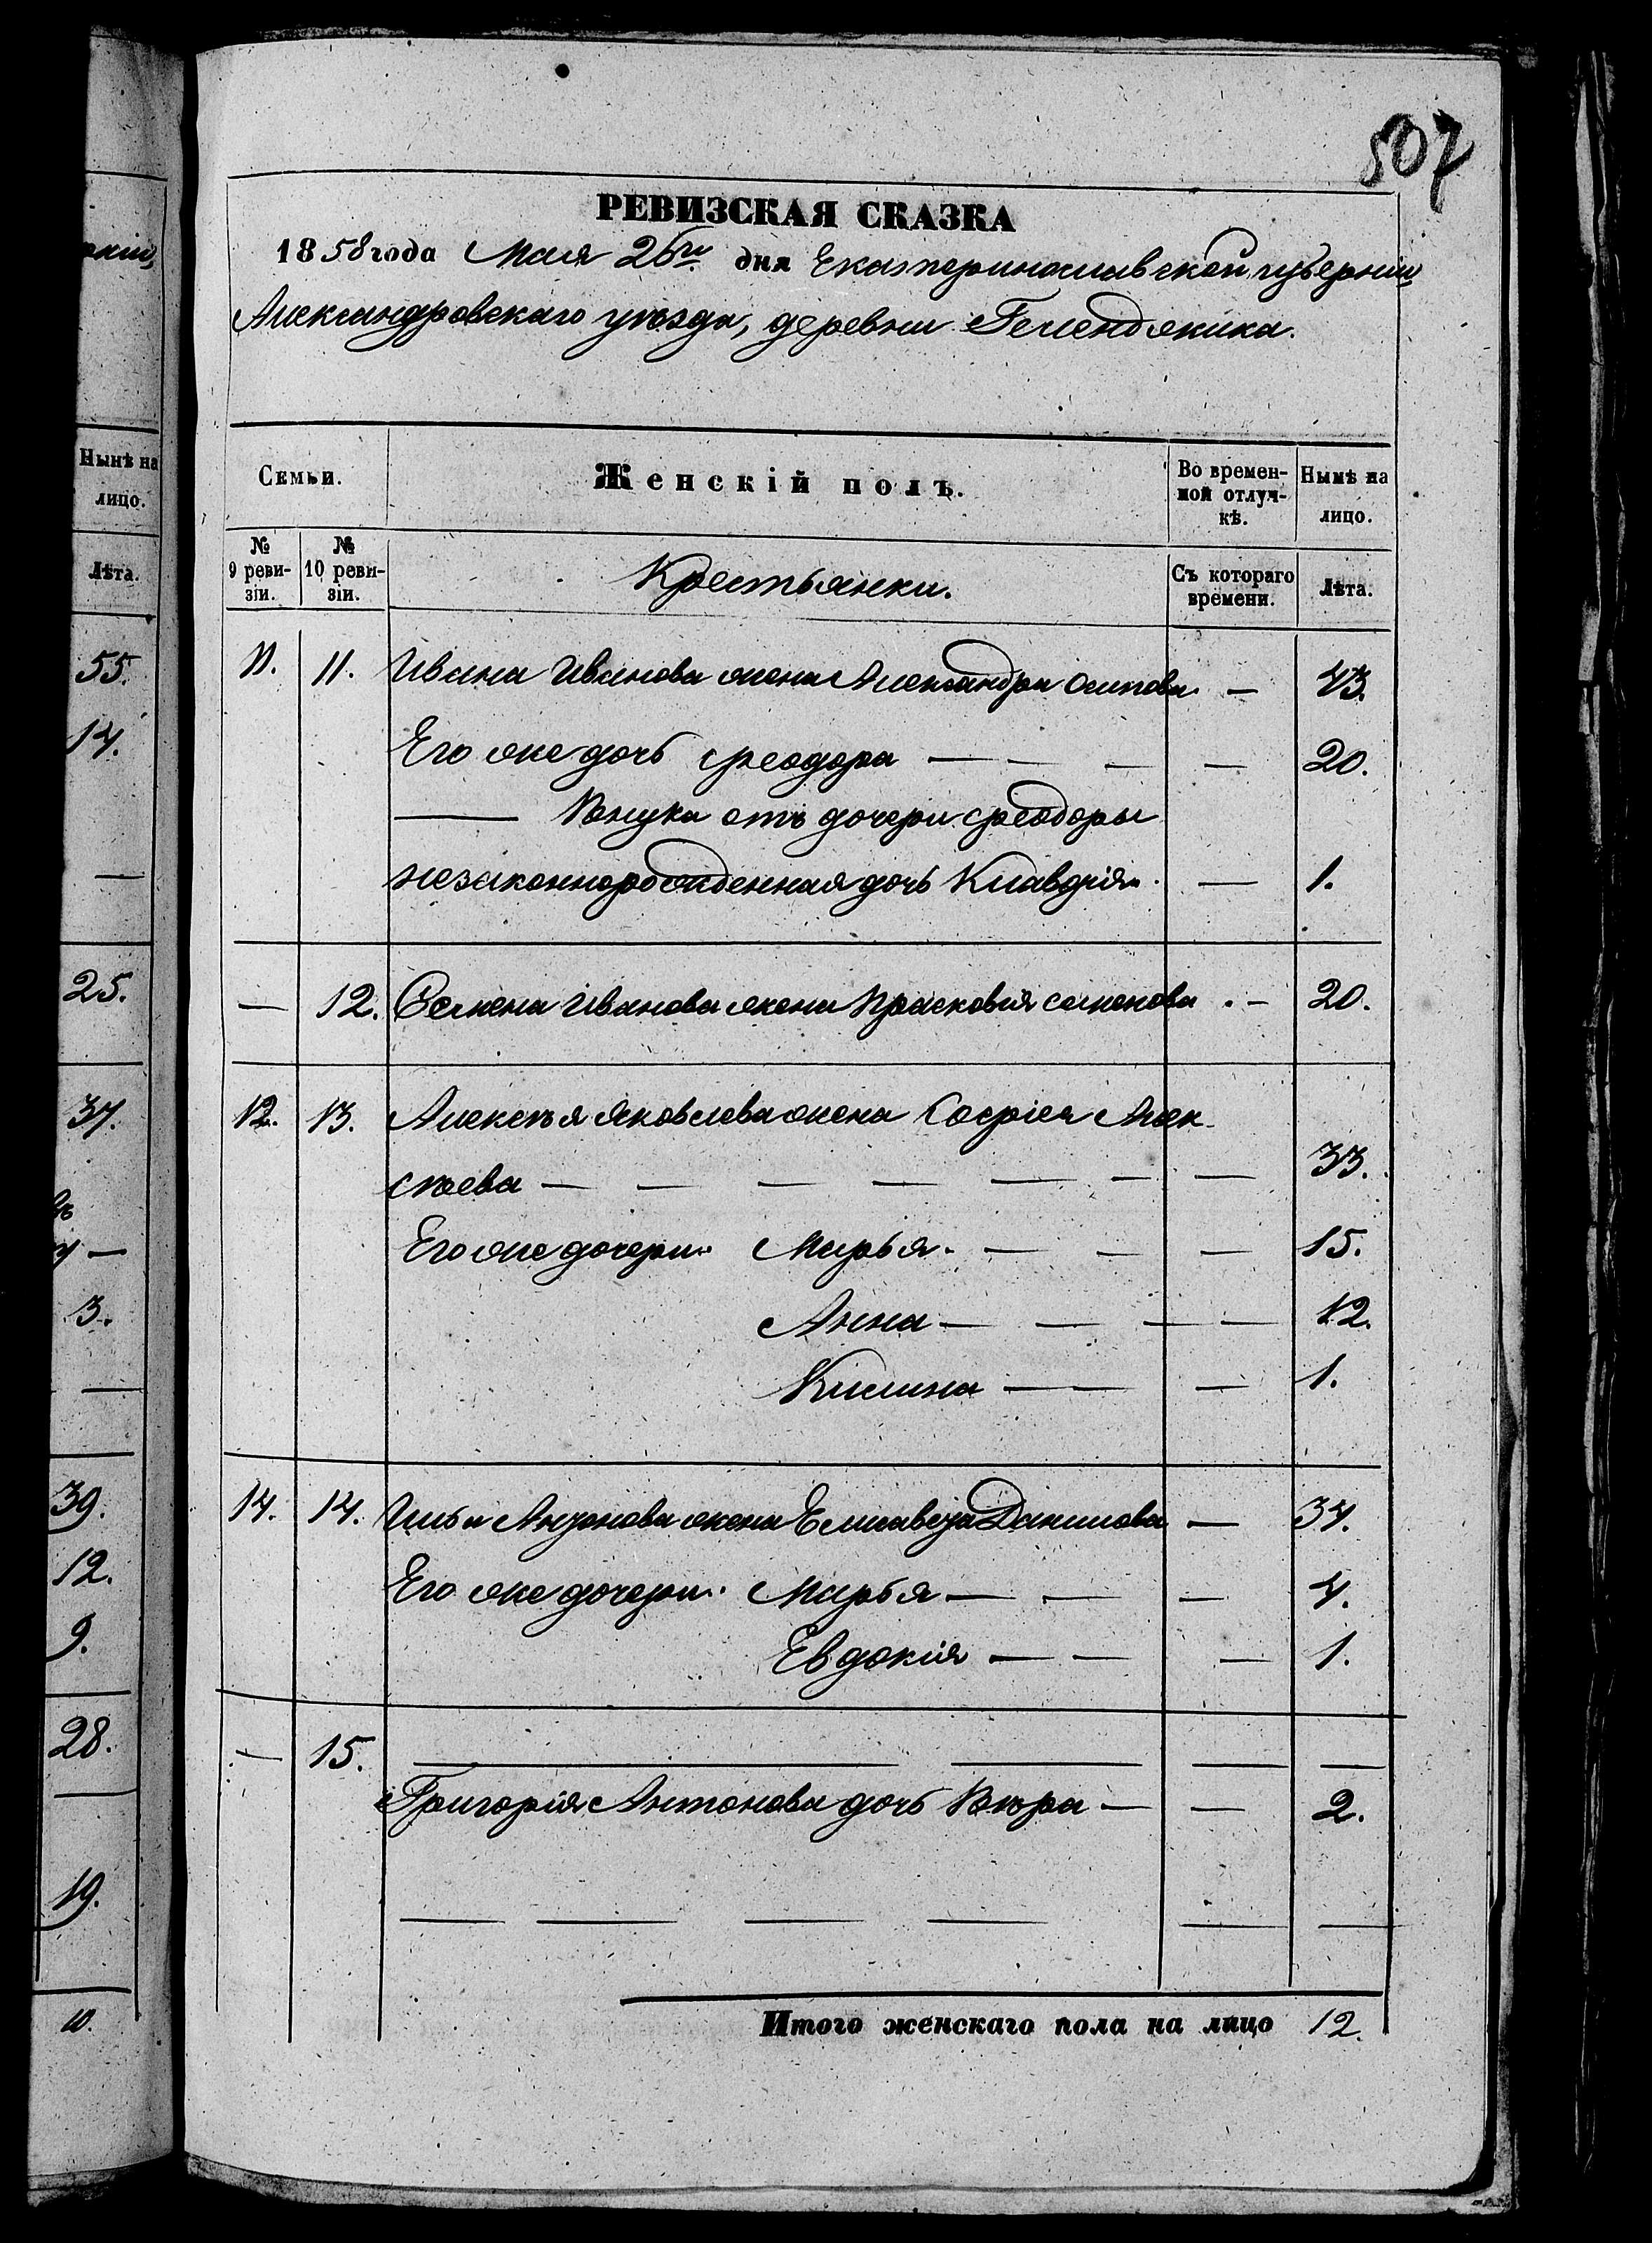 507
РЕВИЗСКАЯ СКАЗКА
1858 года Мая 26го дня Екатеринославской губерніи
Александровскаго уѣзда, деревни
Семьи.
Женскій полъ.
Во времен-
ной отлуч-
кѣ.
Нынѣ на
лицо.
№
9 реви-
зіи.
№
10 реви-
зіи.
Крестьянки.
Съ котораго
времени.
Лѣта.
11. 11. Ивана Иванова жена Александра Осипова — 43.
Его же дочь Ѳеодора — — — — 20.
— Внука отъ дочери Ѳеодоры
незаконнорожденная дочь Клавдія. — 1.
— 12. Семена Иванова жена Прасковія Семенова — 20.
12. 13. Алексѣя Яковлева жена Софія Алек
сѣева — — — — — — — 33.
Его же дочери: Марья — — — 15.
Анна — — — — 12.
Килина — — — 1.
14. 14. Ильи Антонова жена Елисавета Данилова — 34.
Его же дочери: Марья — — — 4.
Евдокія — — — 1.
— 15. — — — —
Григорія Антонова дочь Вѣра — — 2.
— — — — — —
Итого женскаго пола на лицо 12.
Нынѣ на
лицо.
Лѣта.
55.
14.
—
25.
37.
—
3.
—
39.
12.
9.
28.
19.
10.